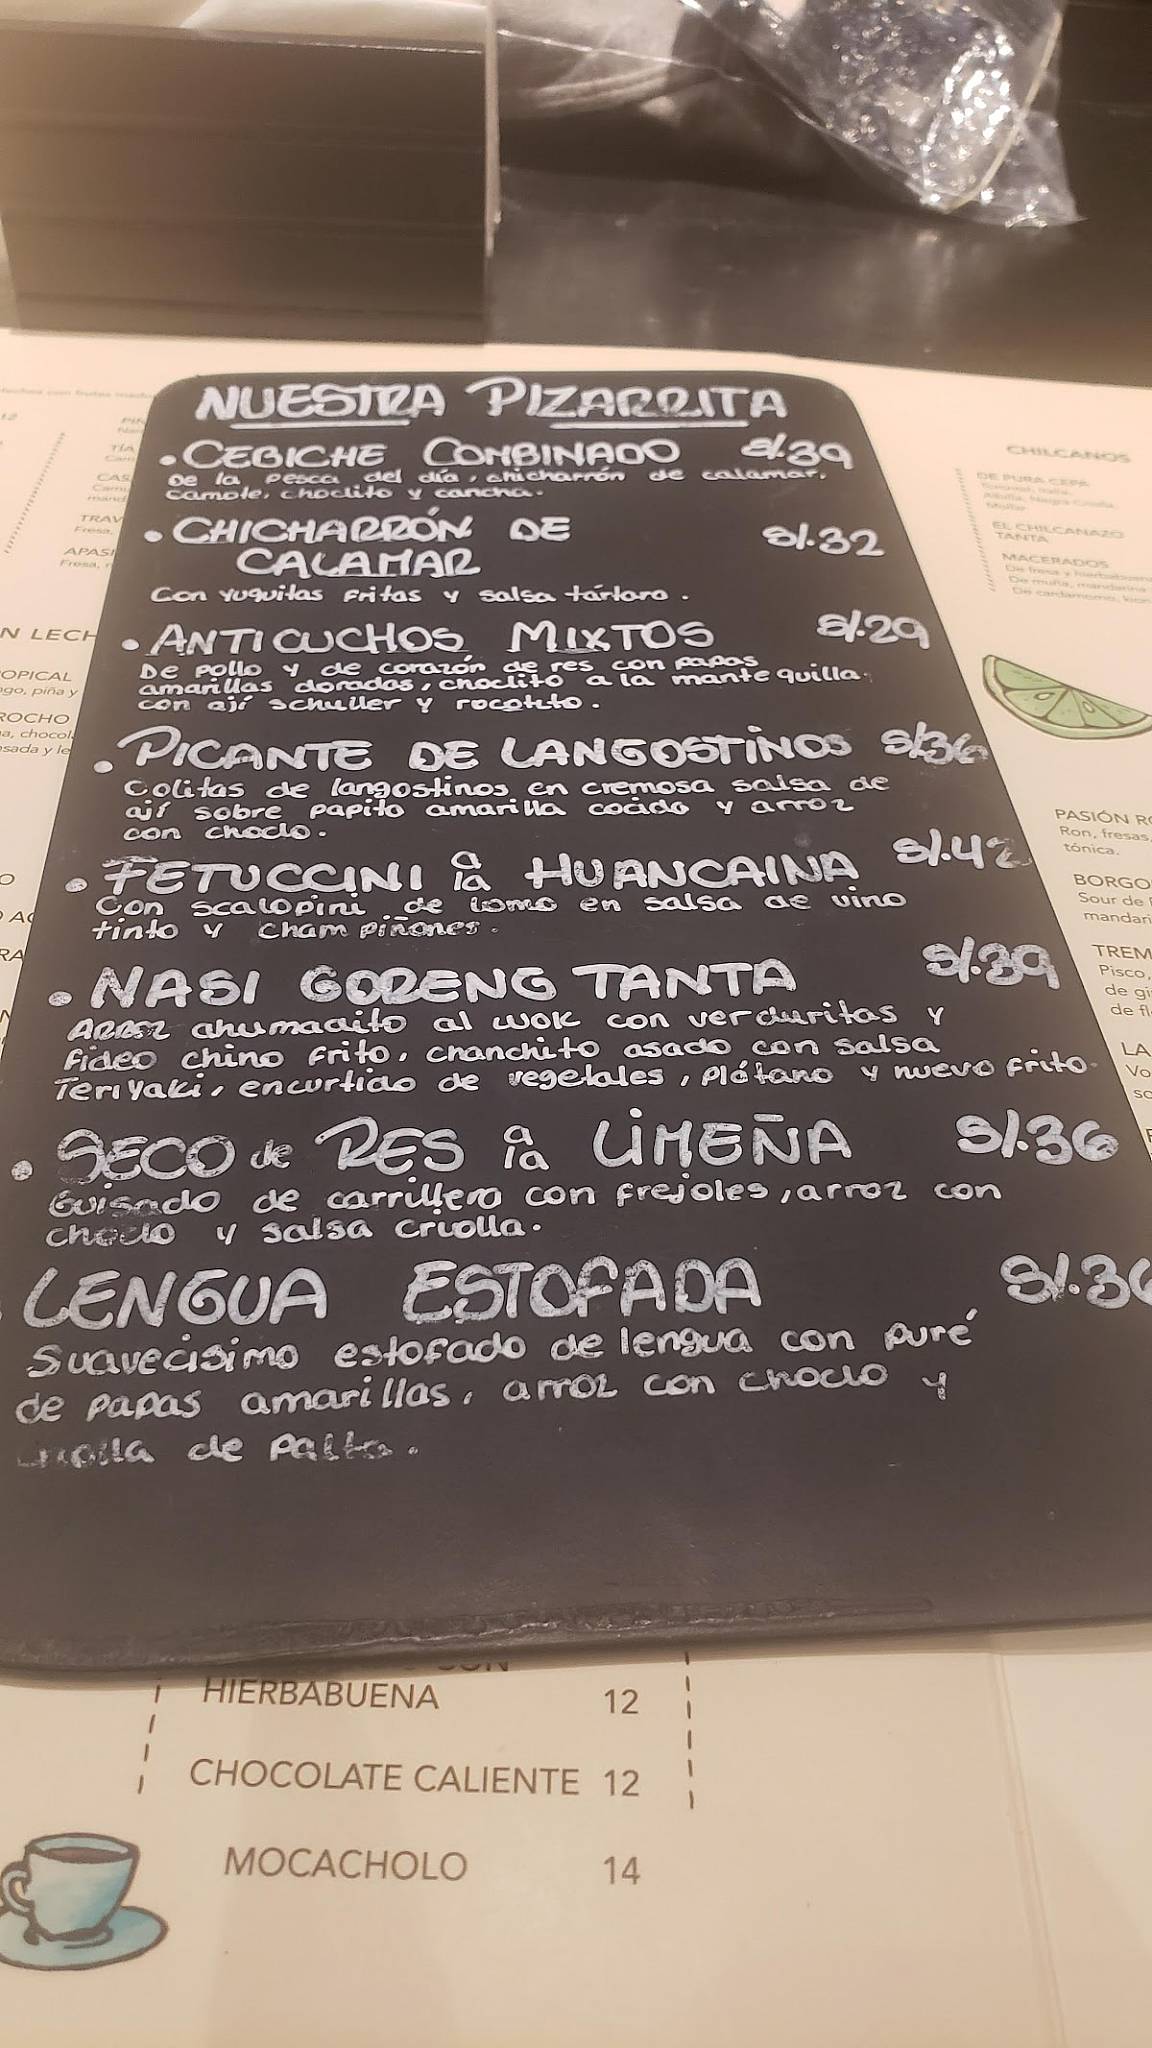 NUESTRA PIZARRITA
• CEBICHE COMBINADO S/.39
De la pesca del día, chicharrón de calamar,
camote, choclito y cancha.
• CHICHARRÓN DE S/.32
CALAMAR
Con yuquitas fritas y salsa tártara.
• ANTICUCHOS MIXTOS S/.29
De pollo y de corazón de res con papas
amarillas doradas, choclito a la mantequilla
con ají schuller y rocotito.
• PICANTE DE LANGOSTINOS S/36
Colitas de langostinos en cremosa salsa de
ají sobre papita amarilla cocida y arroz
con choclo.
• FETUCCINI a la HUANCAINA S/.42
Con scalopini de lomo en salsa de vino
tinto y champiñones.
• NASI GORENG TANTA S/.39
Arroz ahumadito al wok con verduritas y
fideo chino frito, chanchito asado con salsa
Teriyaki, encurtido de vegetales, plátano y nuevo frito.
• SECO de RES a la LIMEÑA S/.36
Guisado de carrillera con frejoles, arroz con
choclo y salsa criolla.
LENGUA ESTOFADA S/.36
Suavecisimo estofado de lengua con puré
de papas amarillas, arroz con choclo y
de palta.
HIERBABUENA 12
CHOCOLATE CALIENTE 12
MOCACHOLO 14
CHILCANOS
DE PURA CEPA
EL CHILCANAZO
TANTA
MACERADOS
PASIÓN R
Ron, fresas,
tónica.
BORGO
Sour de
mandari
TREM
Pisco,
de gi
de fl
LA
Vo
TRAV
Fresa,
APASI
Fresa,
N LECH
OPICAL
go, piña y
ROCHO
a, chocol
sada y le